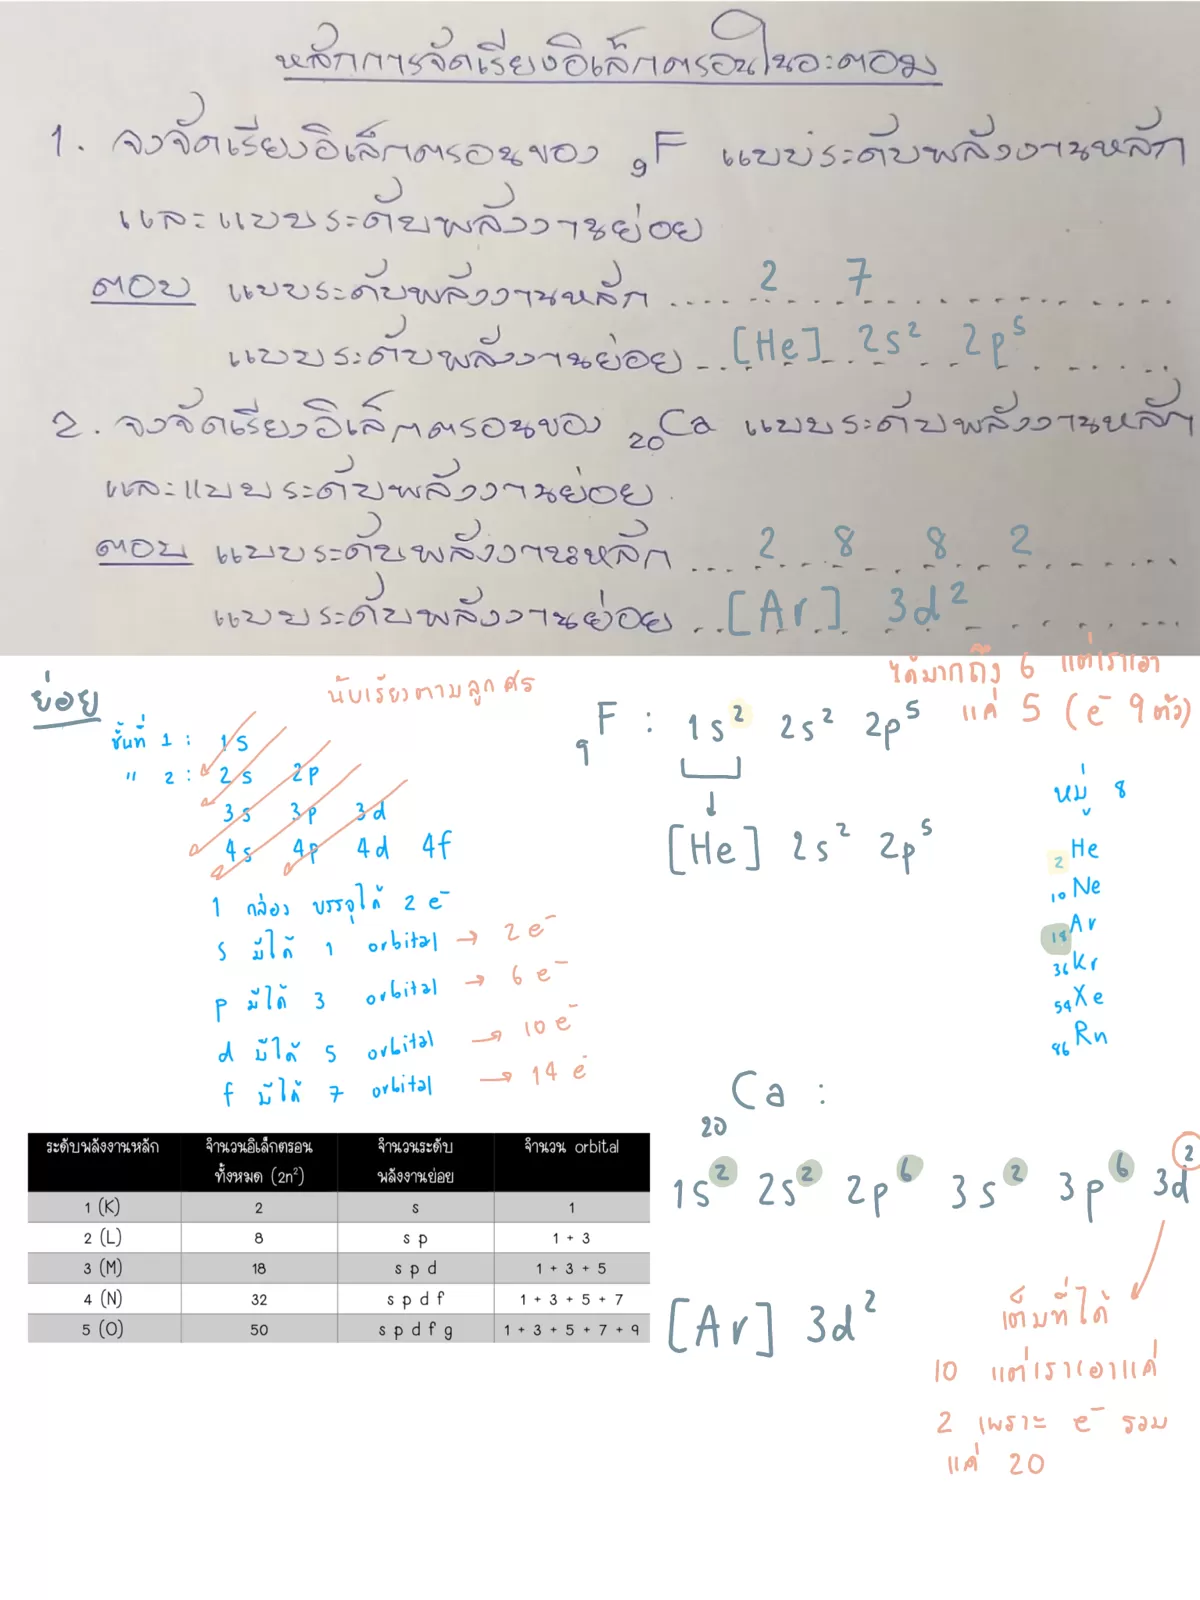 หลักการจัดเรียงอิเล็กตรอนในอะตอม
1. จงจัดเรียงอิเล็กตรอนของ ₉F แบบระดับพลังงานหลัก
และแบบระดับพลังงานย่อย
ตอบ แบบระดับพลังงานหลัก .... 2 7 ....
แบบระดับพลังงานย่อย .. [He] 2s² 2p⁵ ....
2. จงจัดเรียงอิเล็กตรอนของ ₂₀Ca แบบระดับพลังงานหลัก
และแบบระดับพลังงานย่อย
ตอบ แบบระดับพลังงานหลัก .... 2 8 8 2 ....
แบบระดับพลังงานย่อย .. [Ar] 3d² ....
ย่อย
นับเรียงตามลูกศร
ชั้นที่ 1 : 1s
" 2 : 2s 2p
3s 3p 3d
4s 4p 4d 4f
1 กล่อง บรรจุได้ 2 e⁻
s มีได้ 1 orbital → 2 e⁻
p มีได้ 3 orbital → 6 e⁻
d มีได้ 5 orbital → 10 e⁻
f มีได้ 7 orbital → 14 e⁻
ได้มากถึง 6 แต่เราเอา
แค่ 5 (e⁻ 9 ตัว)
₉F : 1s² 2s² 2p⁵
[He] 2s² 2p⁵
หมู่ 8
₂He
₁₀Ne
₁₈Ar
₃₆Kr
₅₄Xe
₈₆Rn
₂₀Ca :
1s² 2s² 2p⁶ 3s² 3p⁶ 3d²
[Ar] 3d²
เต็มที่ได้
10 แต่เราเอาแค่
2 เพราะ e⁻ รวม
แค่ 20
ระดับพลังงานหลัก จำนวนอิเล็กตรอนทั้งหมด (2n²) จำนวนระดับพลังงานย่อย จำนวน orbital
1 (K) 2 s 1
2 (L) 8 s p 1 + 3
3 (M) 18 s p d 1 + 3 + 5
4 (N) 32 s p d f 1 + 3 + 5 + 7
5 (O) 50 s p d f g 1 + 3 + 5 + 7 + 9